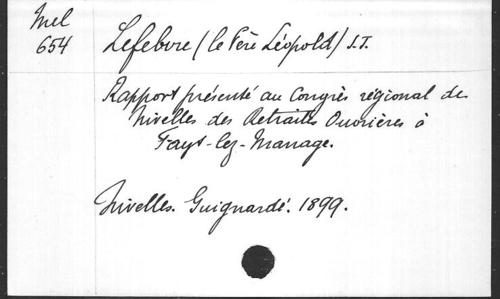 Mel
654
Lefebvre (le Père Léopold) S.J.
Rapport présenté au Congrès régional de
Nivelles des Retraites Ouvrières à
Fayt-lez-Manage.
Nivelles. Guignardé. 1899.